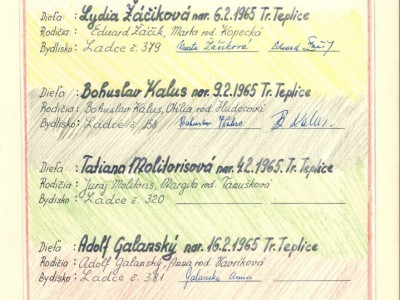 Dieťa: Lydia Žáčiková nar. 6.2.1965 Tr. Teplice
Rodičia: Eduard Žáčik, Marta rod. Kopecká
Bydlisko: Ladce č. 379 Marta Žáčiková Eduard
Dieťa: Bohuslav Kalus nar. 9.2.1965 Tr. Teplice
Rodičia: Bohuslav Kalus, Otília rod. Hudecová
Bydlisko: Ladce č. Bohuslav Kalus
Dieťa: Tatiana Molitorisová nar. 4.2.1965. Tr. Teplice
Rodičia: Juraj Molitoris, Margita rod. Tanušková
Bydisko: Ladce č. 320
Dieťa: Adolf Galanský nar. 16.2.1965 Tr. Teplice
Rodičia: Adolf Galanský, Anna rod. Havríková
Bydlisko: Ladce č. 381 Galanská Anna